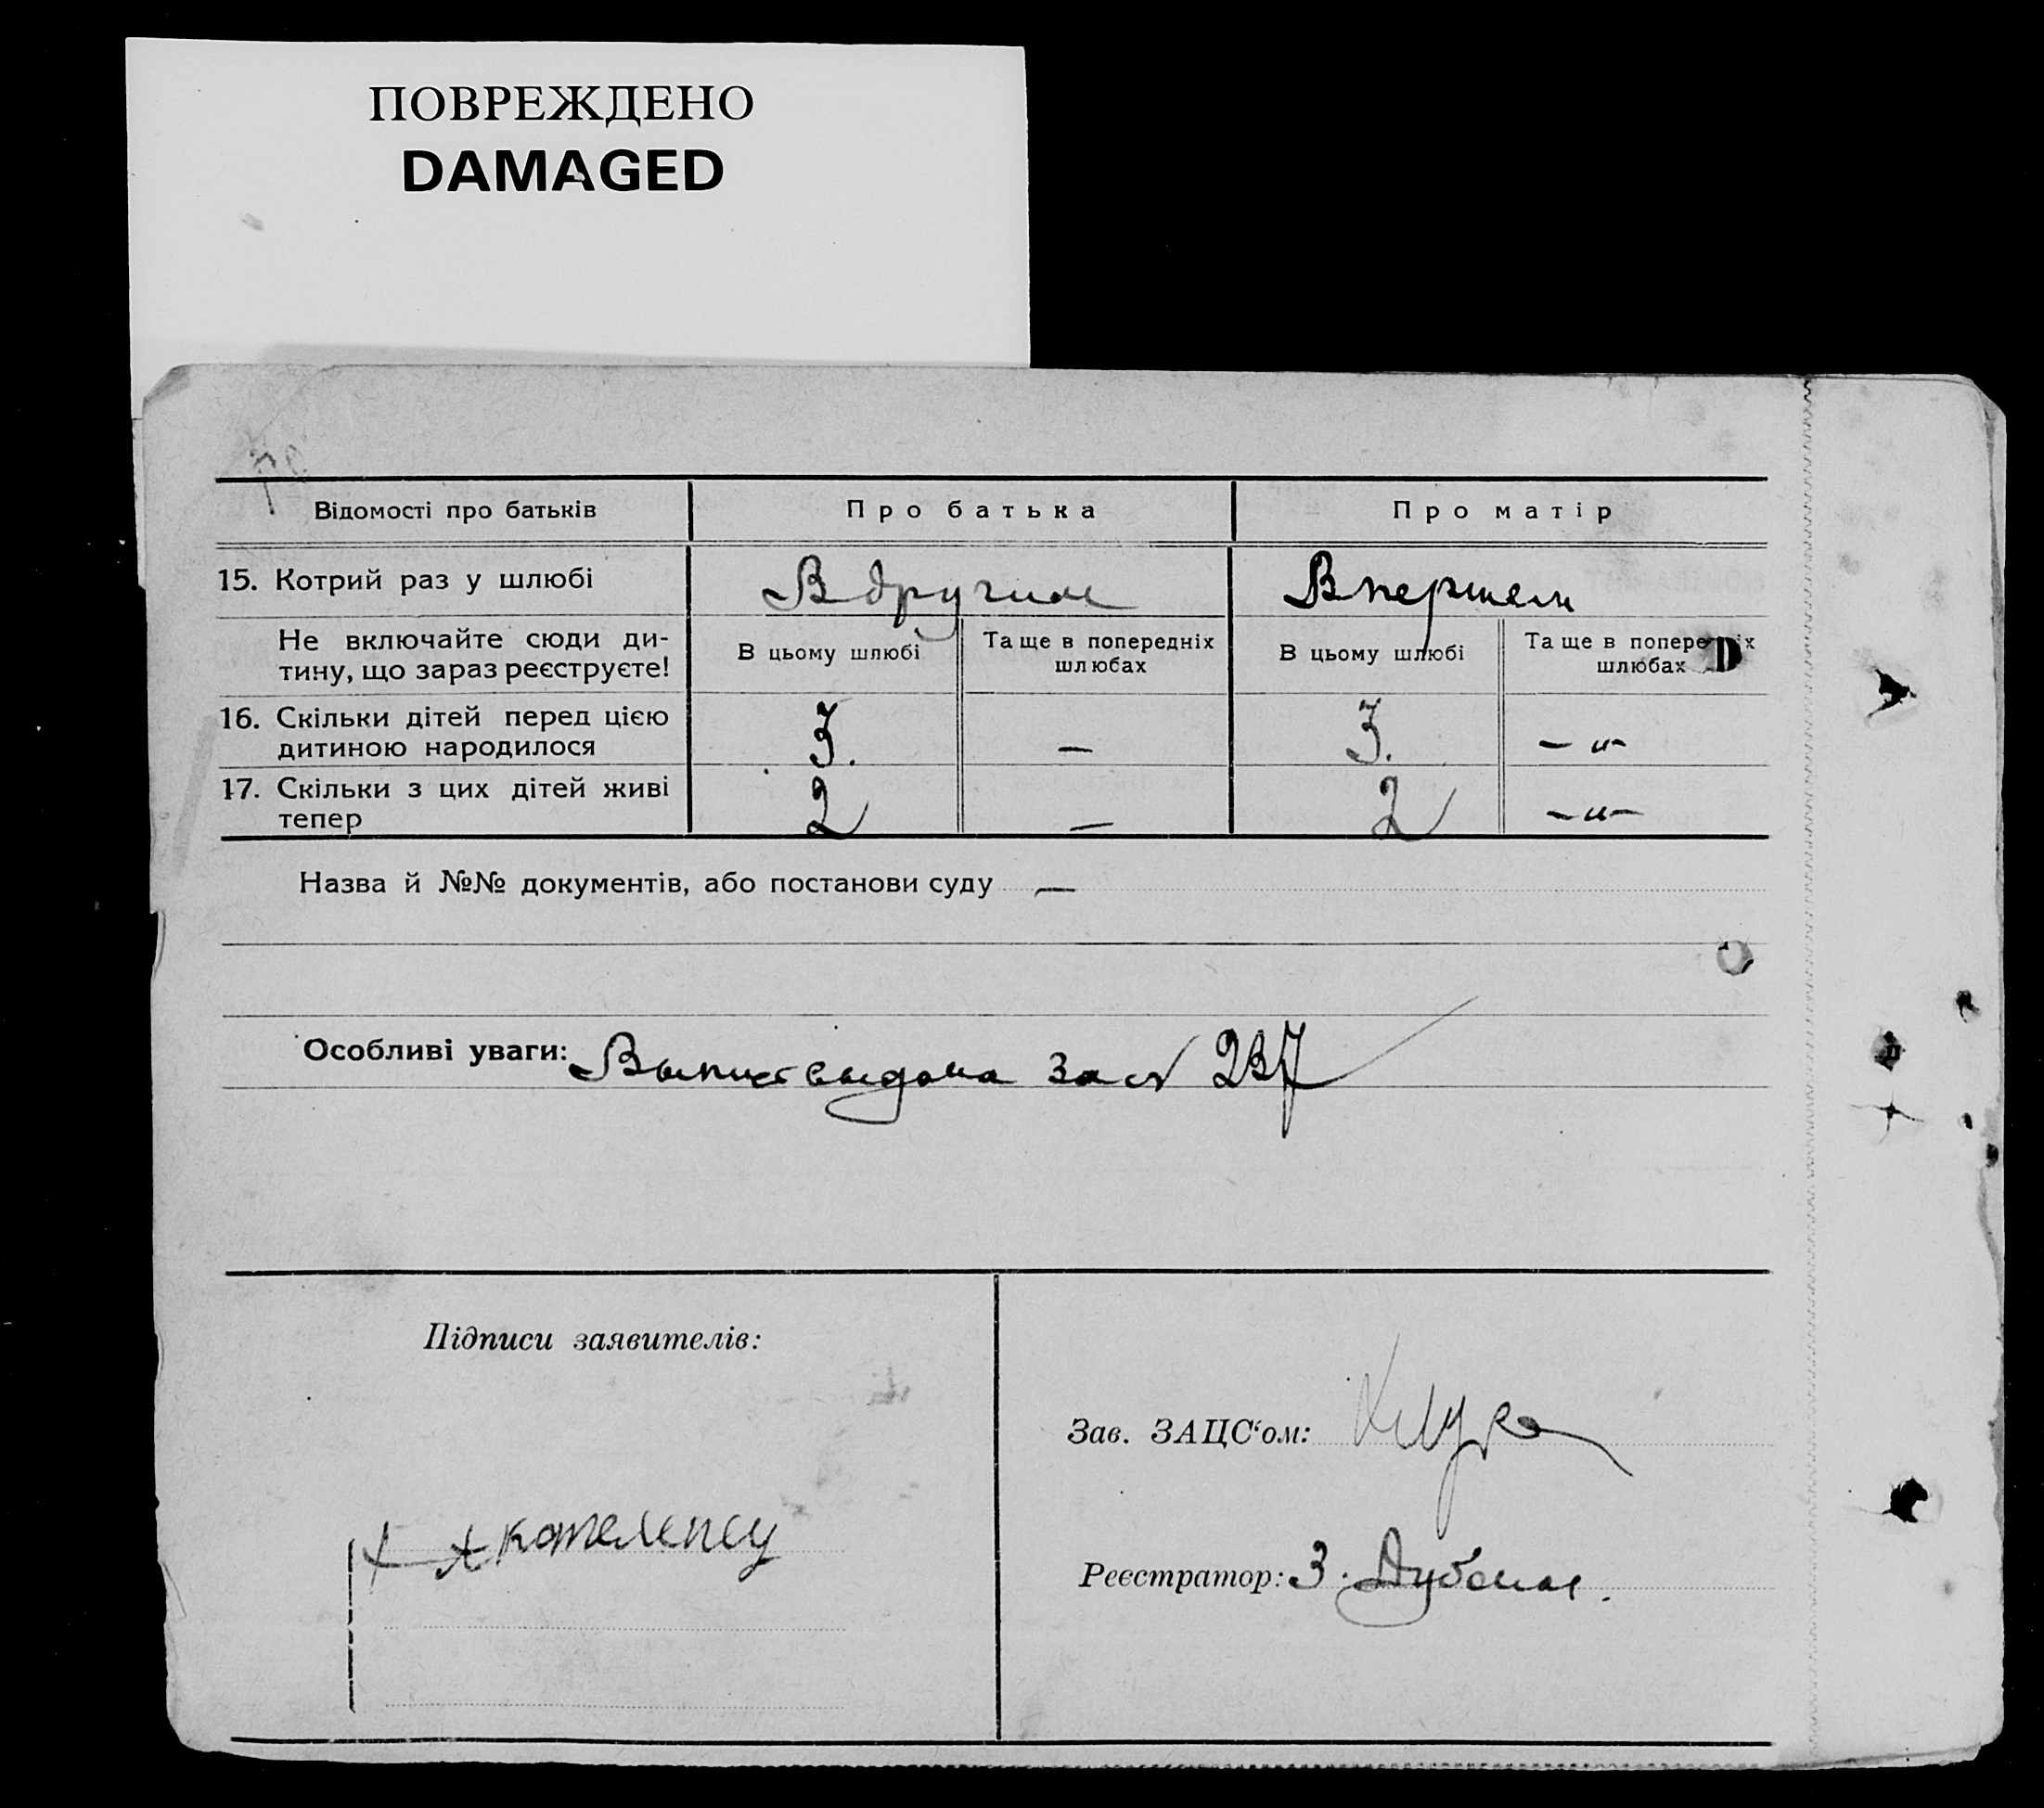 ПОВРЕЖДЕНО
DAMAGED
Відомості про батьків
Про батька
Про матір
15. Котрий раз у шлюбі
В другим
В першем
Не включайте сюди ди-
тину, що зараз реєструєте!
В цьому шлюбі
Та ще в попередніх
шлюбах
В цьому шлюбі
Та ще в попере іх
шлюбах
16. Скільки дітей перед цією
дитиною народилося
3.
—
3.
— „ —
17. Скільки з цих дітей живі
тепер
2
—
2
— „ —
Назва й №№ документів, або постанови суду —
Особливі уваги: выдана за № 237
Підписи заявителів:
Зав. ЗАЦС‘ом:
Реєстратор: З.